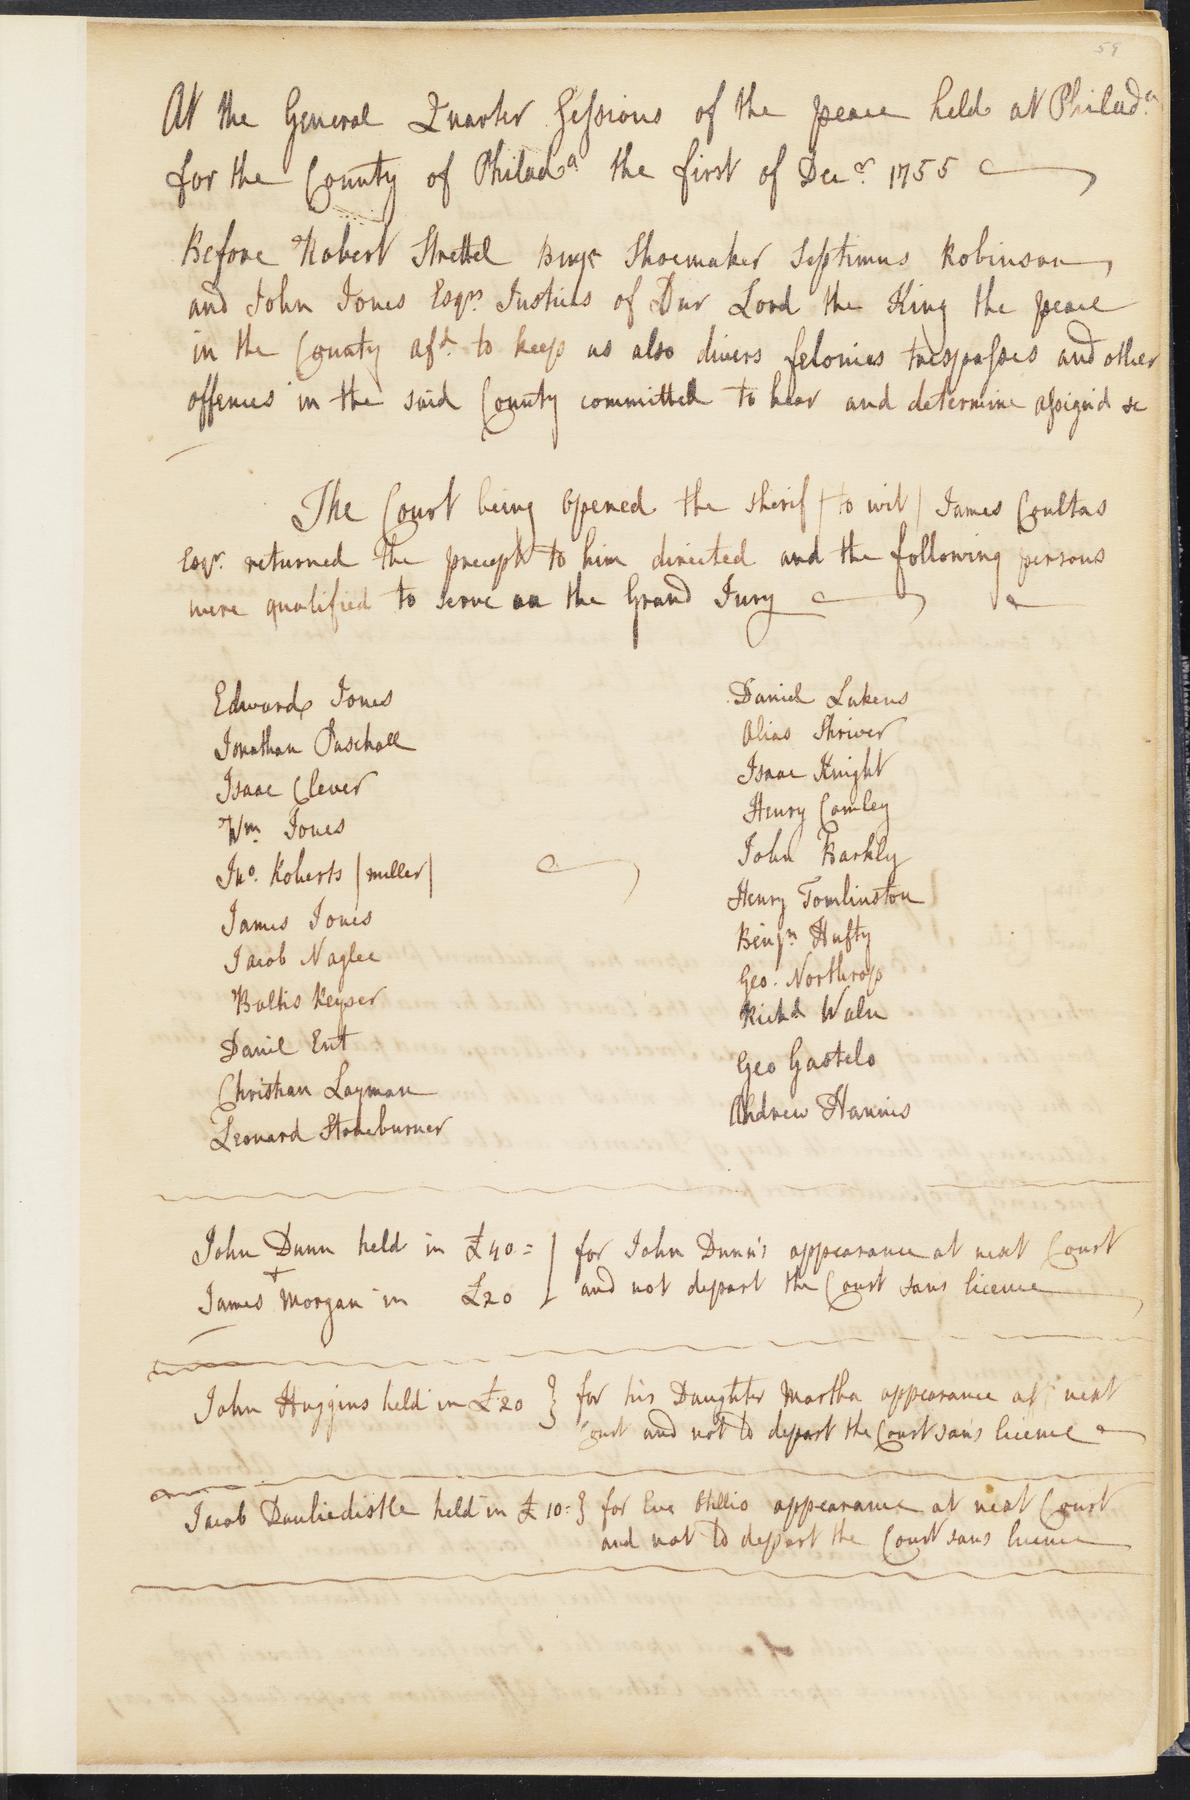 59
At the General Quarter Sessions of the peace held at Philada.
for the County of Philada the first of Decr. 1755
Before Robert Strettel Benjn Shoemaker Septimus Robinson
and John Jones Esqrs. Justices of Our Lord the King the peace
in the County afd. to keep as also divers felonies trespasses and other
offences in the said County committed to hear and determine assignd &c
The Court being opened the Sherif (to wit) James Coultas
Esqr. returned the precept to him directed and the following persons
were qualified to serve on the Grand Jury
Edward Jones
Jonathan Paschall
Isaac Clever
Wm. Jones
Jno. Roberts (miller)
James Jones
Jacob Naglee
Baltis Keyser
Daniel Ent
Christian Layman
Leonard Stoneburner
Daniel Lukens
Alias Shriver
Isaac Knight
Henry Comley
John Barkly
Henry Tomlinston
Benjn Hufty
Geo. Northrop
Richd Waln
Geo Gastelo
Andrew Hannis
John Dunn held in £40= } for John Dunn's appearance at next Court
James Morgan in £20 and not depart the Court sans licence
John Huggins held in £20 } for his Daughter Martha appearance at next
Court and not to depart the Court sans licence
Jacob held in £10= } for Eve appearance at next Court
and not to depart the Court sans licence